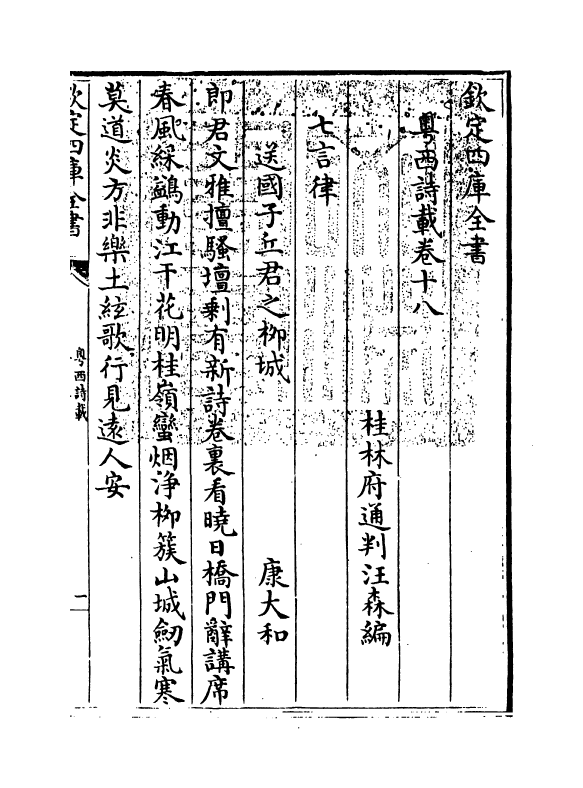 欽定四庫全書
粤西詩載卷十八
桂林府通判汪森編
七言律
送國子丘君之柳城
康大和
即君文雅擅騷壇剩有新詩卷裏看曉日橋門辭講席
春風綵鷁動江干花明桂嶺蠻烟浄柳簇山城劒氣寒
莫道炎方非樂土絃歌行見遠人安
欽定四庫全書
粤西詩載
二